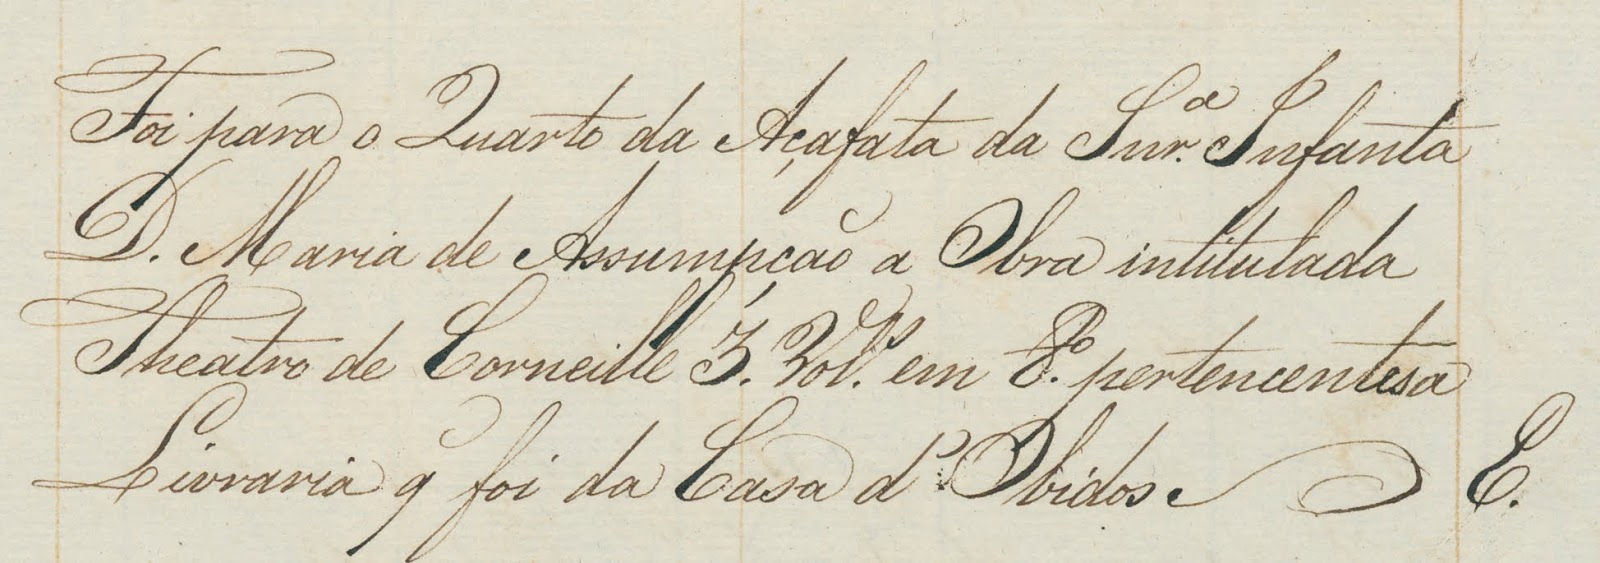 Foi para o Quarto da Açafata da Snr.ª Infanta
D. Maria de Assumpção a Obra intitulada
Theatro de Corneille 3. Vol.es em 8.º pertencentes a
Livraria q̃ foi da Casa d'Obidos E.